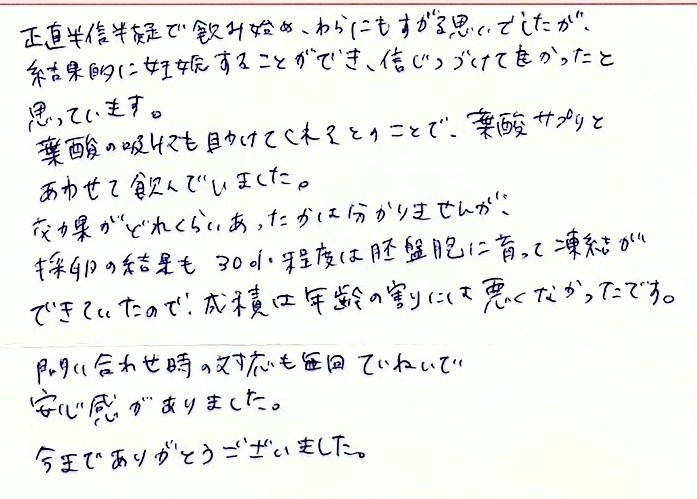 正直半信半疑で飲み始め、わらにもすがる思いでしたが、
結果的に妊娠することができ、信じつづけて良かったと
思っています。
葉酸の吸収も助けてくれるとのことで、葉酸サプリと
あわせて飲んでいました。
効果がどれくらいあったかは分かりませんが、
採卵の結果も30%程度は胚盤胞に育って凍結が
できていたので、成績は年齢の割りには悪くなかったです。
問い合わせ時の対応も毎回ていねいで
安心感がありました。
今までありがとうございました。